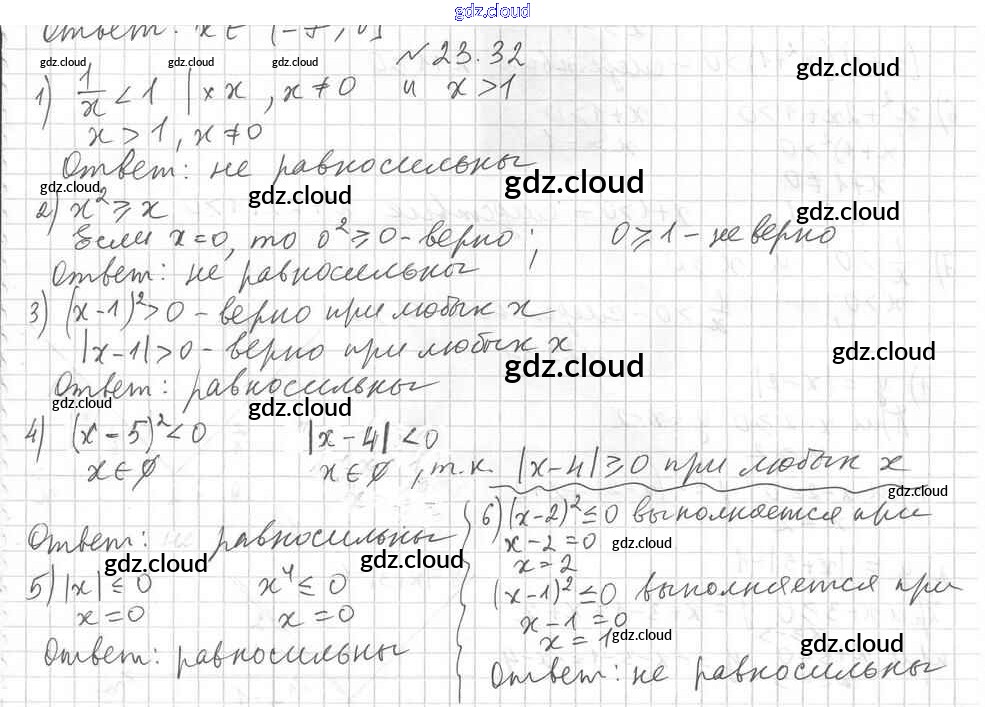 gdz.cloud
Ответ: x ∈
№23.32
gdz.cloud gdz.cloud gdz.cloud gdz.cloud
1) 1/x < 1 | × x , x ≠ 0 и x > 1
x > 1, x ≠ 0
Ответ: не равносильны
gdz.cloud gdz.cloud gdz.cloud gdz.cloud
2) x² ⩾ x
Если x = 0, то 0² ⩾ 0 - верно ; 0 ⩾ 1 - не верно
Ответ: не равносильны
3) (x-1)² > 0 - верно при любых x
|x-1| > 0 - верно при любых x
gdz.cloud gdz.cloud
Ответ: равносильны
gdz.cloud gdz.cloud
4) (x-5)² < 0 |x-4| < 0
x ∈ ∅ x ∈ ∅, т.к. |x-4| ⩾ 0 при любых x
gdz.cloud
Ответ: равносильны
gdz.cloud gdz.cloud
5) |x| ≤ 0 x⁴ ≤ 0
x = 0 x = 0
Ответ: равносильны
6) (x-2)² ≤ 0 выполняется при
x-2 = 0 gdz.cloud
x = 2
(x-1)² ≤ 0 выполняется при
x-1 = 0
x = 1 gdz.cloud gdz.cloud
Ответ: не равносильны